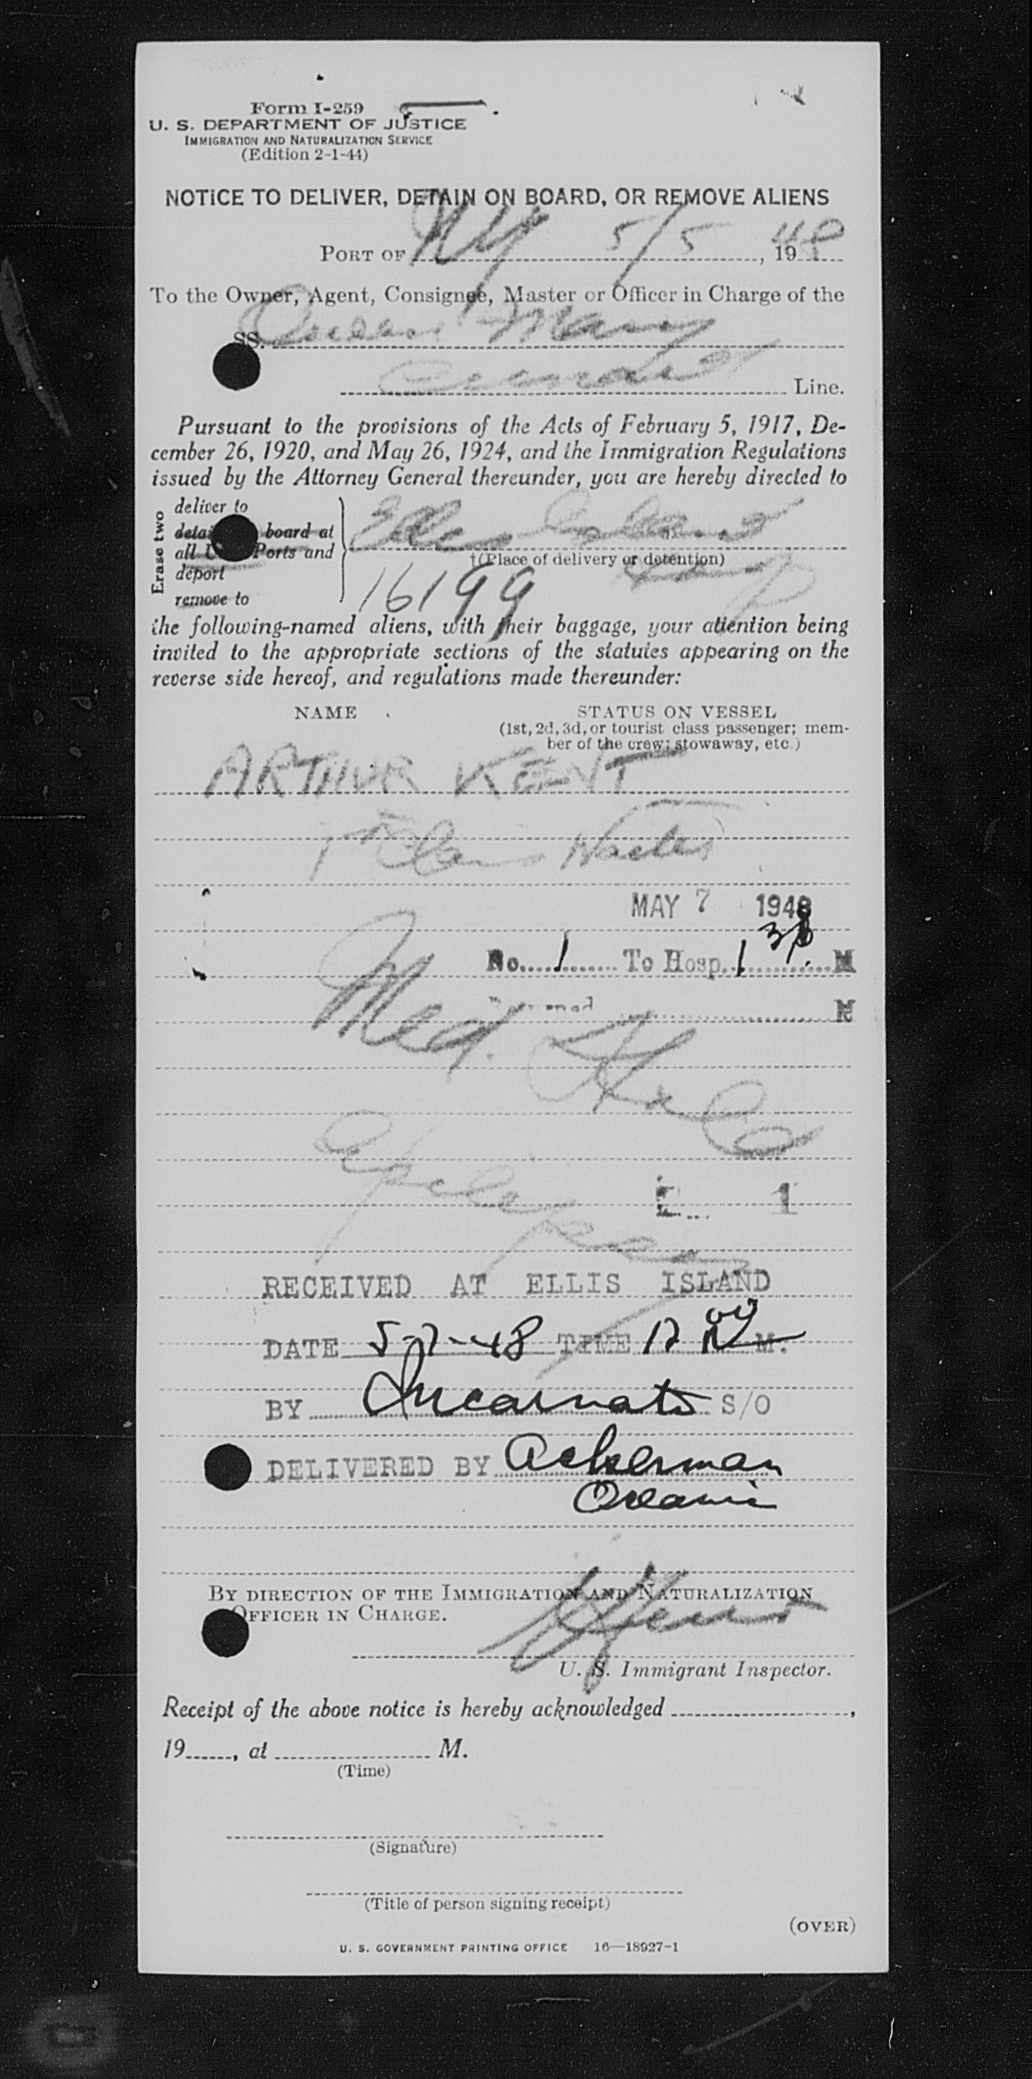 Form I-259
U. S. DEPARTMENT OF JUSTICE
IMMIGRATION AND NATURALIZATION SERVICE
(Edition 2-1-44)
NOTICE TO DELIVER, DETAIN ON BOARD, OR REMOVE ALIENS
PORT OF NY 5/5, 1948
To the Owner, Agent, Consignee, Master or Officer in Charge of the
SS. Queen Mary
Cunard Line.
Pursuant to the provisions of the Acts of February 5, 1917, De-
cember 26, 1920, and May 26, 1924, and the Immigration Regulations
issued by the Attorney General thereunder, you are hereby directed to
Erase two
deliver to
board at
all Ports and
deport
remove to
Ellis Island
(Place of delivery or detention)
16199
the following-named aliens, with their baggage, your attention being
invited to the appropriate sections of the statutes appearing on the
reverse side hereof, and regulations made thereunder:
NAME STATUS ON VESSEL
(1st, 2d, 3d, or tourist class passenger; mem-
ber of the crew; stowaway, etc.)
ARTHUR KENT
MAY 7 1948
No. 1 To Hosp. 1 M
M
Med. Hold
1
RECEIVED AT ELLIS ISLAND
DATE 5-7-48 TIME 12 M.
BY Incarnato S/O
DELIVERED BY Ackerman
BY DIRECTION OF THE IMMIGRATION AND NATURALIZATION
OFFICER IN CHARGE.
U. S. Immigrant Inspector.
Receipt of the above notice is hereby acknowledged ,
19 , at M.
(Time)
(Signature)
(Title of person signing receipt)
(OVER)
U. S. GOVERNMENT PRINTING OFFICE 16—18927-1